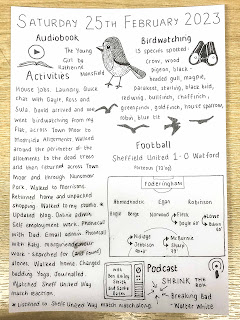 SATURDAY 25TH FEBRUARY 2023
Audiobook
The Young
Girl by
Katherine
Mansfield
Birdwatching
15 species spotted:
crow, wood
pigeon, black-
headed gull, magpie,
parakeet, starling, black bird,
redwing, bullfinch, chaffinch,
greenfinch, goldfinch, house sparrow,
robin, blue tit
Activities
House jobs. Laundry. Quick
chat with Gayle, Ross and
Sula. David arrived and we
went birdwatching from my
flat, across Town Moor to
Moorside Allotments. Walked
around the perimeter of the
allotments to the dead trees
and then returned across Town
Moor and through Nunsmoor
Park. Walked to Morrisons.
Returned home and unpacked
shopping. Walked to my studio. *
Updated blog. Online admin.
Self employment work. Phonecall
with Dad. Email admin. Phonecall
with Baby.
work. Searched for
alone. Walked home. Changed
bedding. Yoga. Journalled.
Watched Sheff United Way
match reaction.
* Listened to Sheff United Way matchalong.
Football
Sheffield United 1-0 Watford
Foderingham
Ahmedhodzic Egan Robinson
Bogle Berge Norwood Fleck
Lowe
Ndiaye
McBurnie
Sharp
Podcast
SHRINK THE
BOX
Breaking Bad
- Walter White
with
Ben Bailey
Smith
and Sasha
Bates